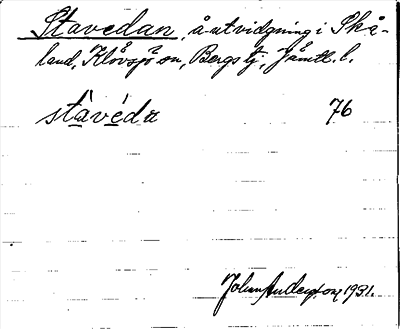 Stavedan, å-utvidgning i Skå-
land, Klövsjö sn, Bergs tj, Jämtl. l.
stàvéda 76
Johan Anderson 1931.